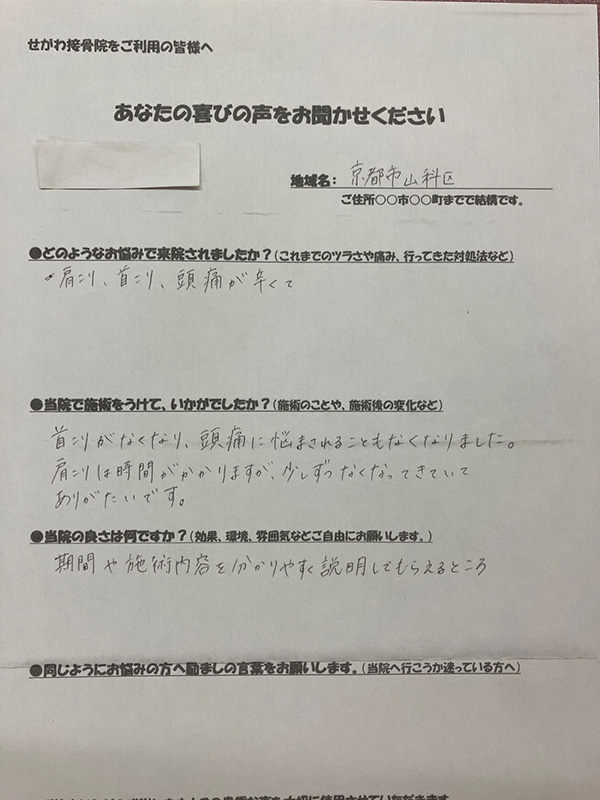 せがわ接骨院をご利用の皆様へ
あなたの喜びの声をお聞かせください
地域名: 京都市山科区
ご住所〇〇市〇〇町までで結構です。
●どのようなお悩みで来院されましたか?(これまでのツラさや痛み、行ってきた対処法など)
・肩こり、首こり、頭痛が辛くて
●当院で施術をうけて、いかがでしたか?(施術のことや、施術後の変化など)
首こりがなくなり、頭痛に悩まされることもなくなりました。
肩こりは時間がかかりますが、少しずつなくなってきていて
ありがたいです。
●当院の良さは何ですか?(効果、環境、雰囲気などご自由にお願いします。)
期間や施術内容を分かりやすく説明してもらえるところ
●同じようにお悩みの方へ励ましの言葉をお願いします。(当院へ行こうか迷っている方へ)